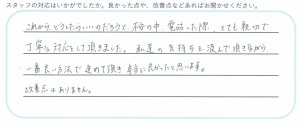 スタッフの対応はいかがでしたか。良かった点や、改善点などあればお聞かせください。
これからどうしたらいいのだろうと不安の中、電話した際、とても親切で
丁寧に対応をして頂きました。私達の気持ちを汲んで頂きながら
一番良い方法で進めて頂き本当に良かったと思います。
改善点はありません。